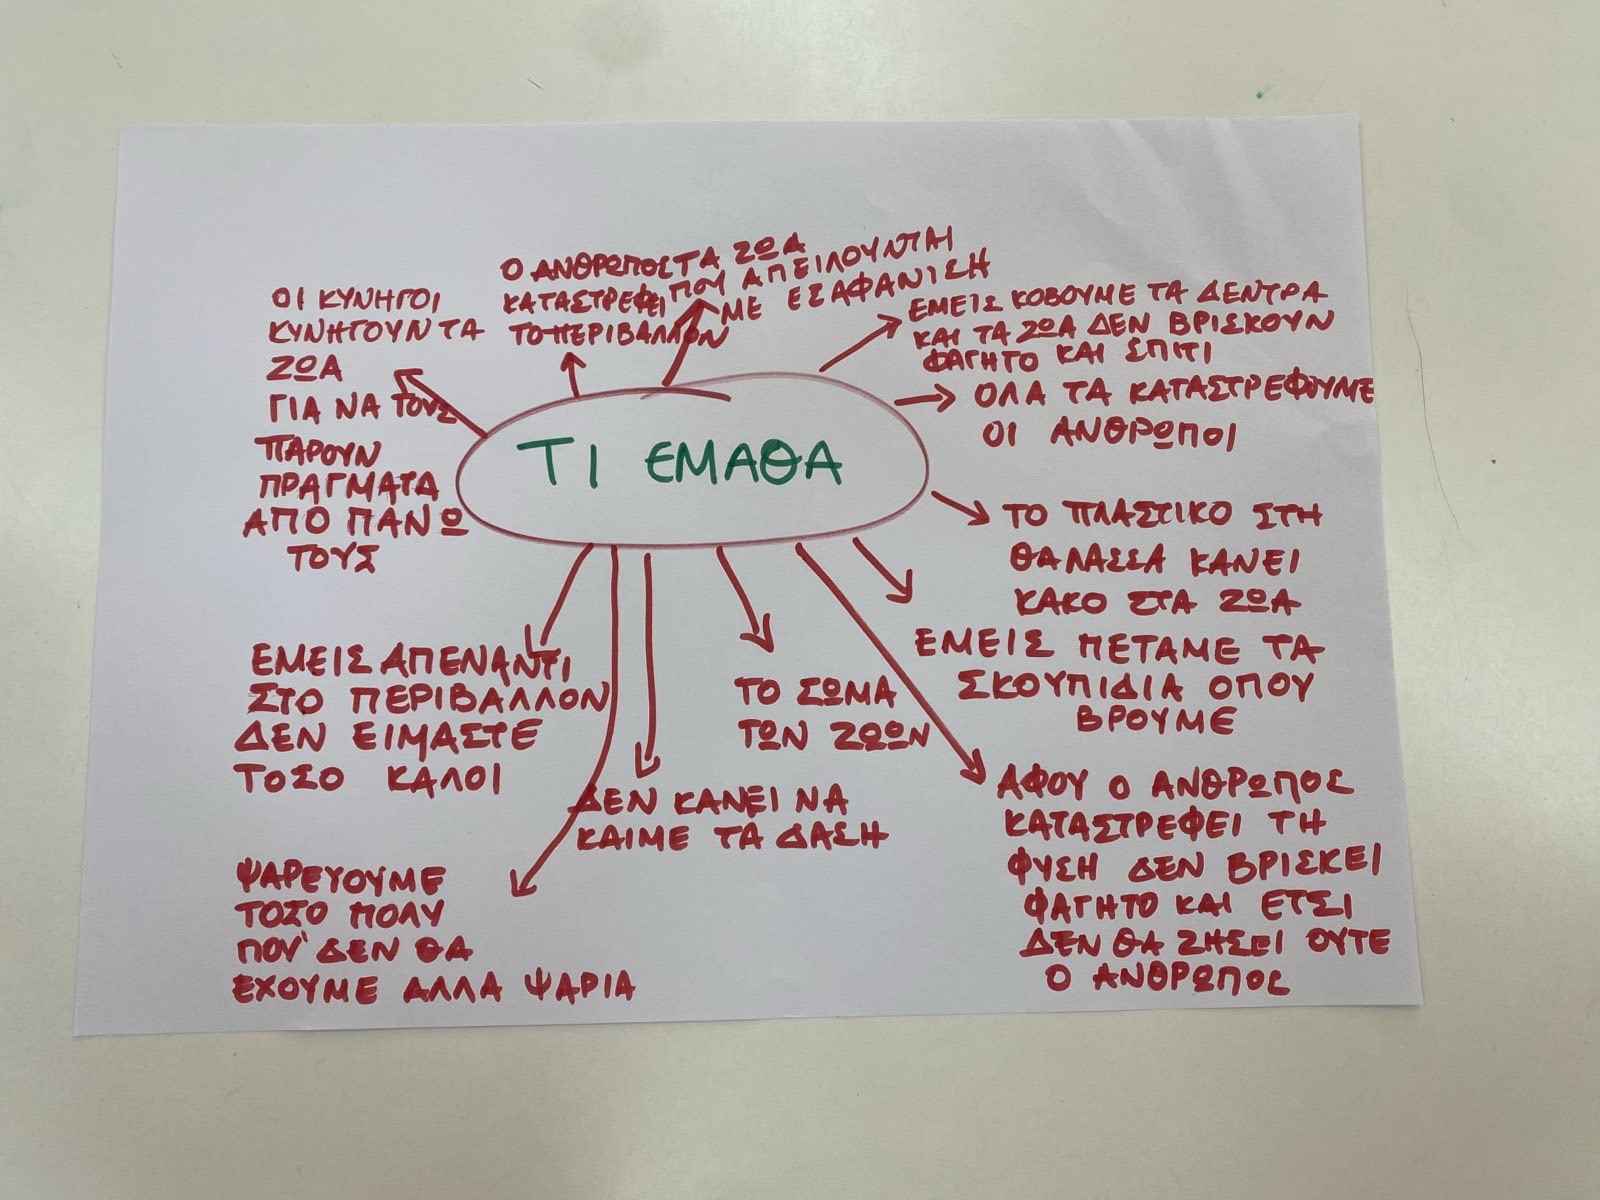 ΤΙ ΕΜΑΘΑ
ΟΙ ΚΥΝΗΓΟΙ
ΚΥΝΗΓΟΥΝ ΤΑ
ΖΩΑ
ΓΙΑ ΝΑ ΤΟΥΣ
ΠΑΡΟΥΝ
ΠΡΑΓΜΑΤΑ
ΑΠΟ ΠΑΝΩ
ΤΟΥΣ
Ο ΑΝΘΡΩΠΟΣ
ΚΑΤΑΣΤΡΕΦΕΙ
ΤΟ ΠΕΡΙΒΑΛΛΟΝ
ΤΑ ΖΩΑ
ΠΟΥ ΑΠΕΙΛΟΥΝΤΑΙ
ΜΕ ΕΞΑΦΑΝΙΣΗ
ΕΜΕΙΣ ΚΟΒΟΥΜΕ ΤΑ ΔΕΝΤΡΑ
ΚΑΙ ΤΑ ΖΩΑ ΔΕΝ ΒΡΙΣΚΟΥΝ
ΦΑΓΗΤΟ ΚΑΙ ΣΠΙΤΙ
ΟΛΑ ΤΑ ΚΑΤΑΣΤΡΕΦΟΥΜΕ
ΟΙ ΑΝΘΡΩΠΟΙ
ΤΟ ΠΛΑΣΤΙΚΟ ΣΤΗ
ΘΑΛΑΣΣΑ ΚΑΝΕΙ
ΚΑΚΟ ΣΤΑ ΖΩΑ
ΕΜΕΙΣ ΠΕΤΑΜΕ ΤΑ
ΣΚΟΥΠΙΔΙΑ ΟΠΟΥ
ΒΡΟΥΜΕ
ΑΦΟΥ Ο ΑΝΘΡΩΠΟΣ
ΚΑΤΑΣΤΡΕΦΕΙ ΤΗ
ΦΥΣΗ ΔΕΝ ΒΡΙΣΚΕΙ
ΦΑΓΗΤΟ ΚΑΙ ΕΤΣΙ
ΔΕΝ ΘΑ ΖΗΣΕΙ ΟΥΤΕ
Ο ΑΝΘΡΩΠΟΣ
ΤΟ ΣΩΜΑ
ΤΩΝ ΖΩΩΝ
ΔΕΝ ΚΑΝΕΙ ΝΑ
ΚΑΙΜΕ ΤΑ ΔΑΣΗ
ΕΜΕΙΣ ΑΠΕΝΑΝΤΙ
ΣΤΟ ΠΕΡΙΒΑΛΛΟΝ
ΔΕΝ ΕΙΜΑΣΤΕ
ΤΟΣΟ ΚΑΛΟΙ
ΨΑΡΕΥΟΥΜΕ
ΤΟΣΟ ΠΟΛΥ
ΠΟΥ ΔΕΝ ΘΑ
ΕΧΟΥΜΕ ΑΛΛΑ ΨΑΡΙΑ